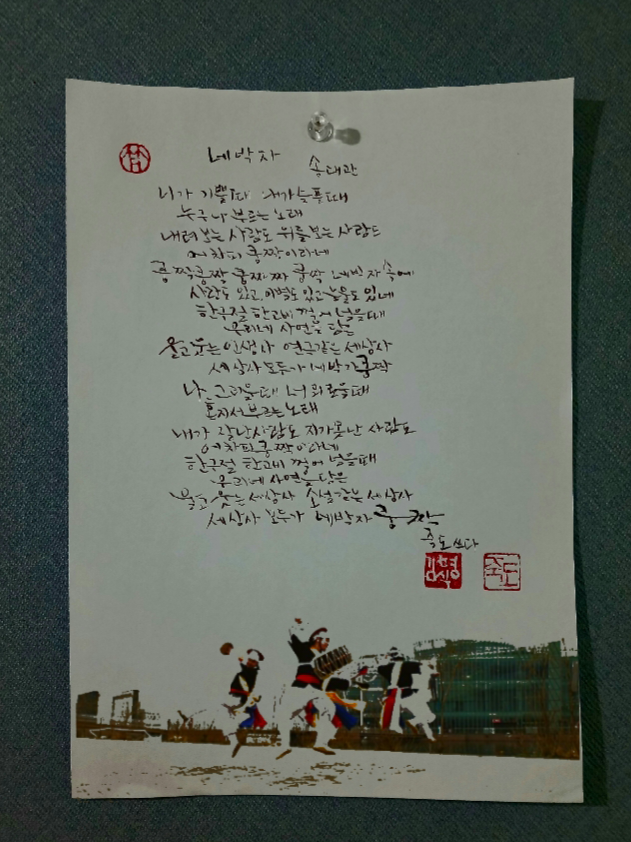 네박자
송대관
니가 기쁠때 내가 슬플때
누구나 부르는 노래
내려보는 사람도 위를 보는 사람도
어차피 쿵짝이라네
쿵짝쿵짝 쿵짜짜 쿵짝 네박자 속에
사랑도 있고 이별도 있고 눈물도 있네
한구절 한고비 꺾어 넘을때
우리네 사연을 담은
울고웃는 인생사 연극같은 세상사
세상사 모두가 네박자 쿵짝
나 그리울때 너 외로울때
혼자서 부르는 노래
내가 잘난 사람도 지가 못난 사람도
어차피 쿵짝이라네
한구절 한고비 꺾어 넘을때
우리네 사연을 담은
울고 웃는 세상사 소설같은 세상사
세상사 모두가 네박자 쿵짝
죽도 쓰다
김평식 죽도